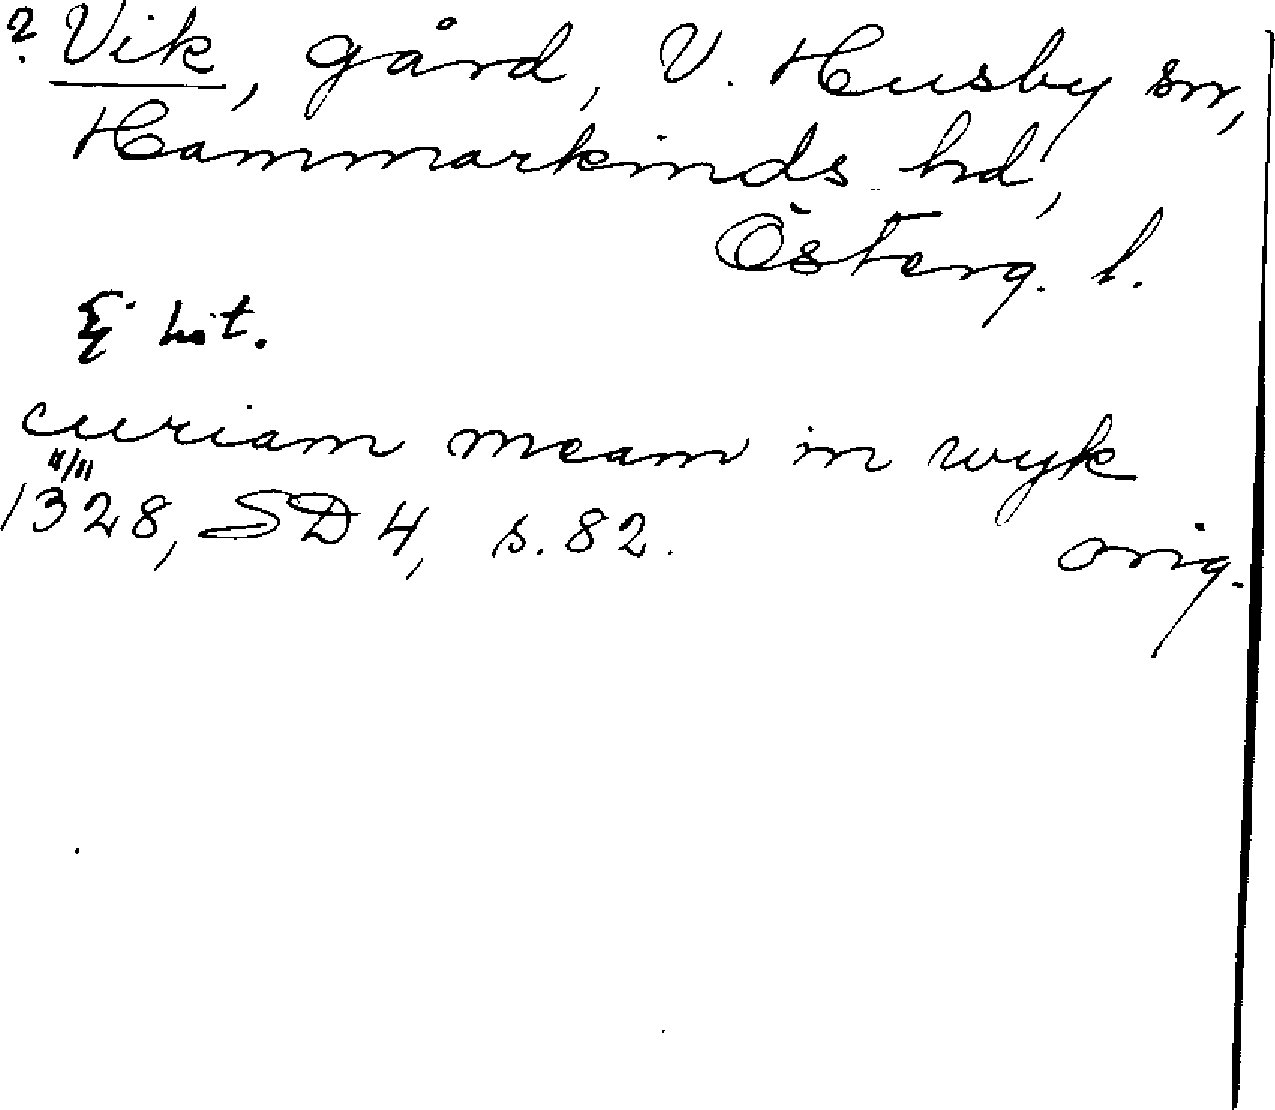 ? Vik, gård, V. Husby sn,
Hammarkinds hd,
Österg. l.
Ej hit.
curiam meam in wyk
11/11
1328, SD 4, s. 82.
orig.